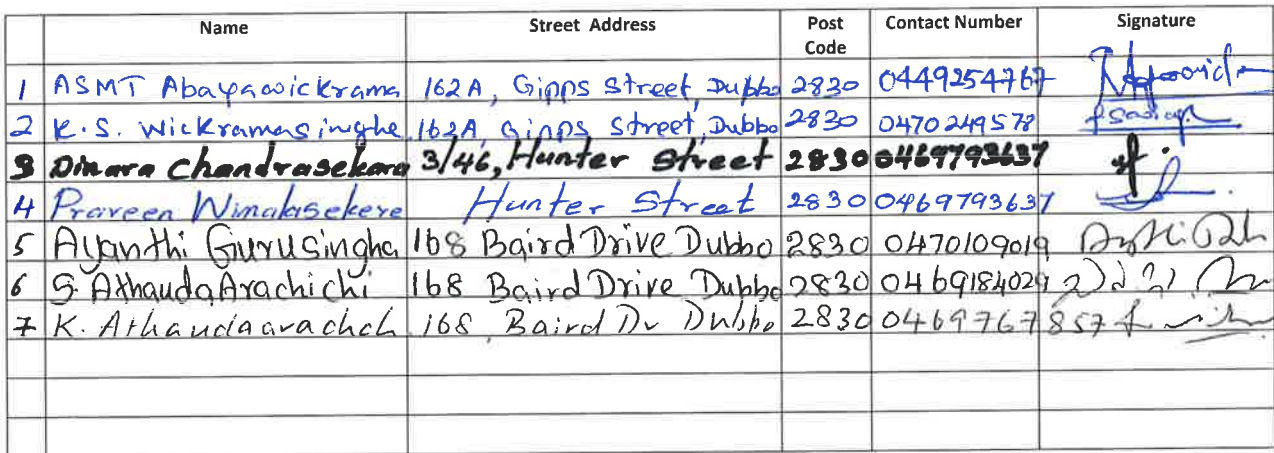 Name Street Address Post Code Contact Number Signature
1 ASMT Abayawickrama 162A, Gipps Street, Dubbo 2830 0449254767
2 K.S. Wickramasinghe 162A, Gipps Street, Dubbo 2830 0470249578
3 Dinara Chandrasekara 3/46, Hunter Street 2830 0469793637
4 Praveen Wimalasekere Hunter Street 2830 0469793637
5 Ayanthi Gurusingha 168 Baird Drive Dubbo 2830 0470109019
6 S. Athauda Arachichi 168 Baird Drive Dubbo 2830 0469184029
7 K. Athaudaarachch 168, Baird Dr Dubbo 2830 0469767857